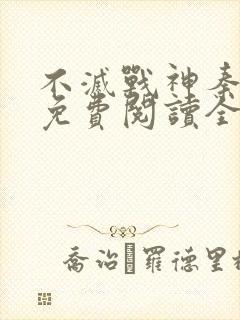 不滅戰神秦
免費閱讀全
喬治·羅德里